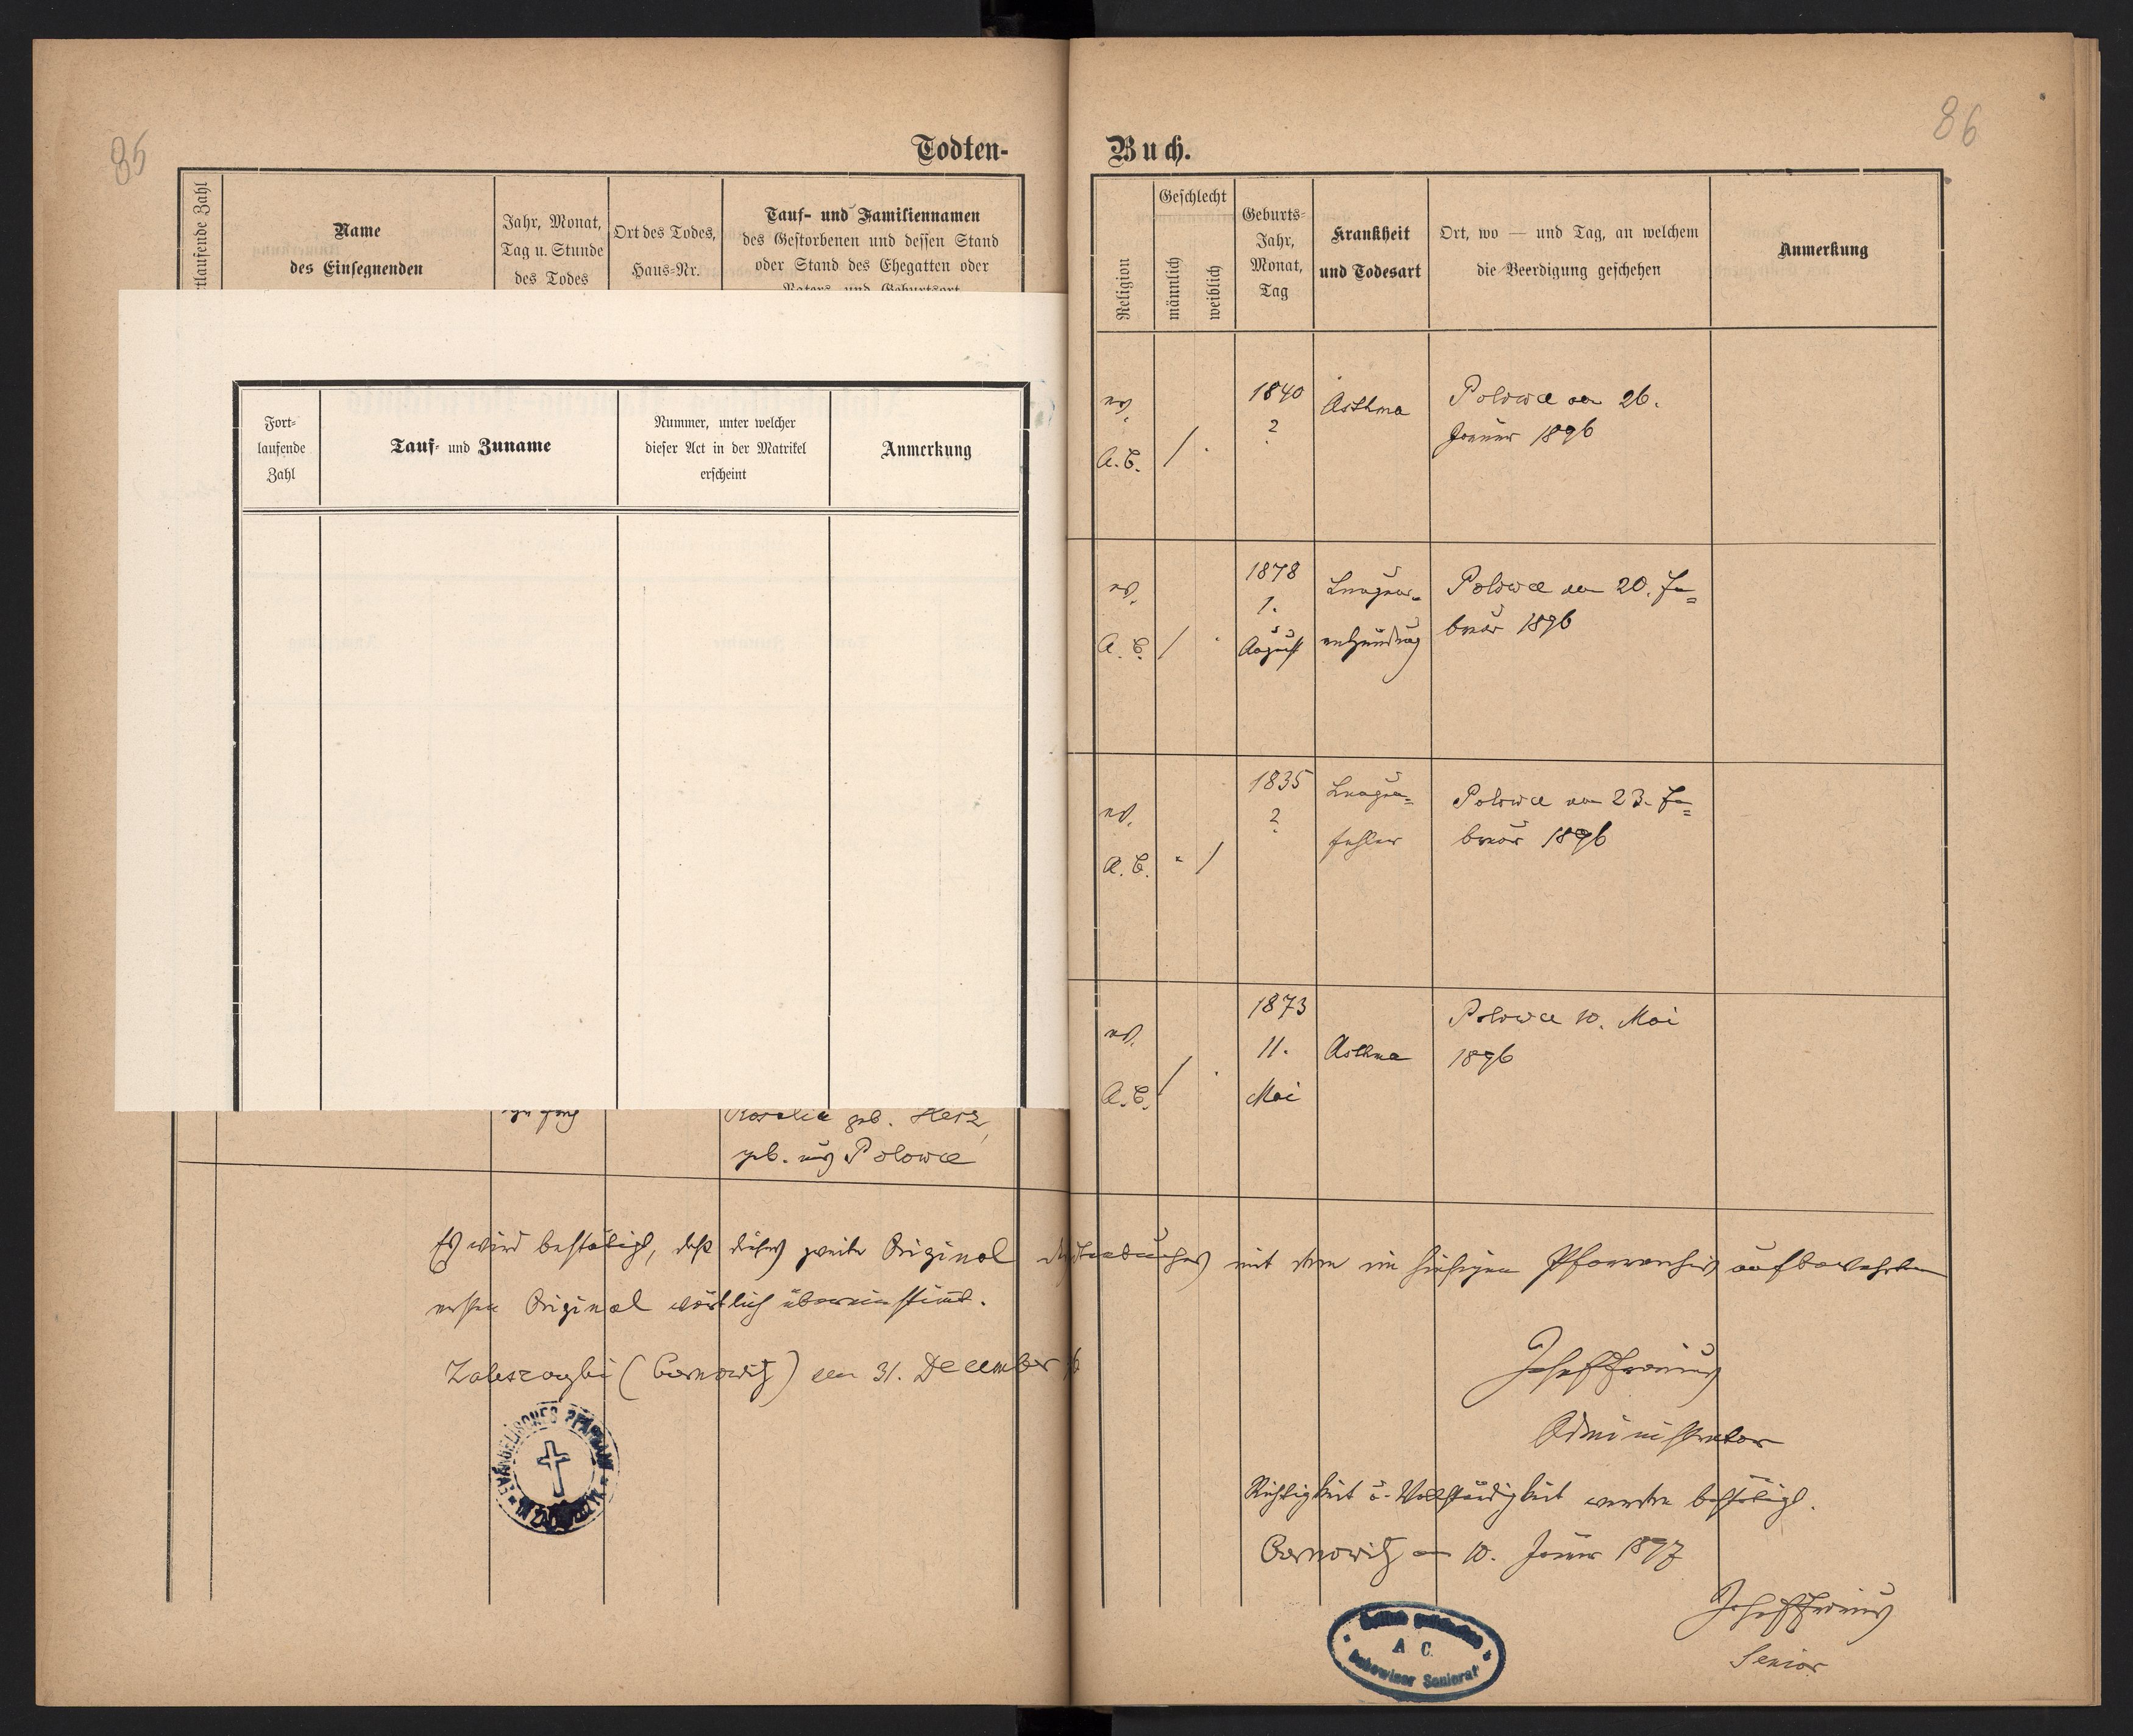 85
86
Todten-
Buch.
Fortlaufende Zahl
Name
des Einsegnenden
Jahr, Monat,
Tag u. Stunde
des Todes
Ort des Todes,
Haus-Nr.
Tauf- und Familiennamen
des Gestorbenen und dessen Stand
oder Stand des Ehegatten oder
Vaters, und Geburtsort
Fort-
laufende
Zahl
Tauf- und Zuname
Nummer, unter welcher
dieser Act in der Matrikel
erscheint
Anmerkung
Rosalia geb. Herz,
geb. aus Polowce
Religion
Geschlecht
männlich
weiblich
Geburts-
Jahr,
Monat,
Tag
Krankheit
und Todesart
Ort, wo — und Tag, an welchem
die Beerdigung geschehen
Anmerkung
ev.
A. C.
/
1840
?
Asthma
Polowce den 26.
Januar 1896
ev.
A. C.
/
1878
1.
August
Lungen-
entzündung
Polowce den 20. Fe=
bruar 1896
ev.
A. C.
/
1835
?
Lungen=
fehler
Polowce den 23. Fe=
bruar 1896
ev.
A. C.
/
1873
11.
Mai
Asthma
Polowce 10. Mai
1896
Es wird bestätigt, daß dieses zweite Original mit dem im hiesigen Pfarrarchiv aufbewahrten
ersten Original wörtlich übereinstimmt.
Zaleszczyki (Czernowitz) den 31. December
EVANGELISCHES PFARRAMT
Josef Fronius
Administrator
Richtigkeit u. Vollständigkeit werden bestätigt.
Czernowitz am 10. Jänner 1897
Josef Fronius
Senior
A C.
Bukowiner Seniorat